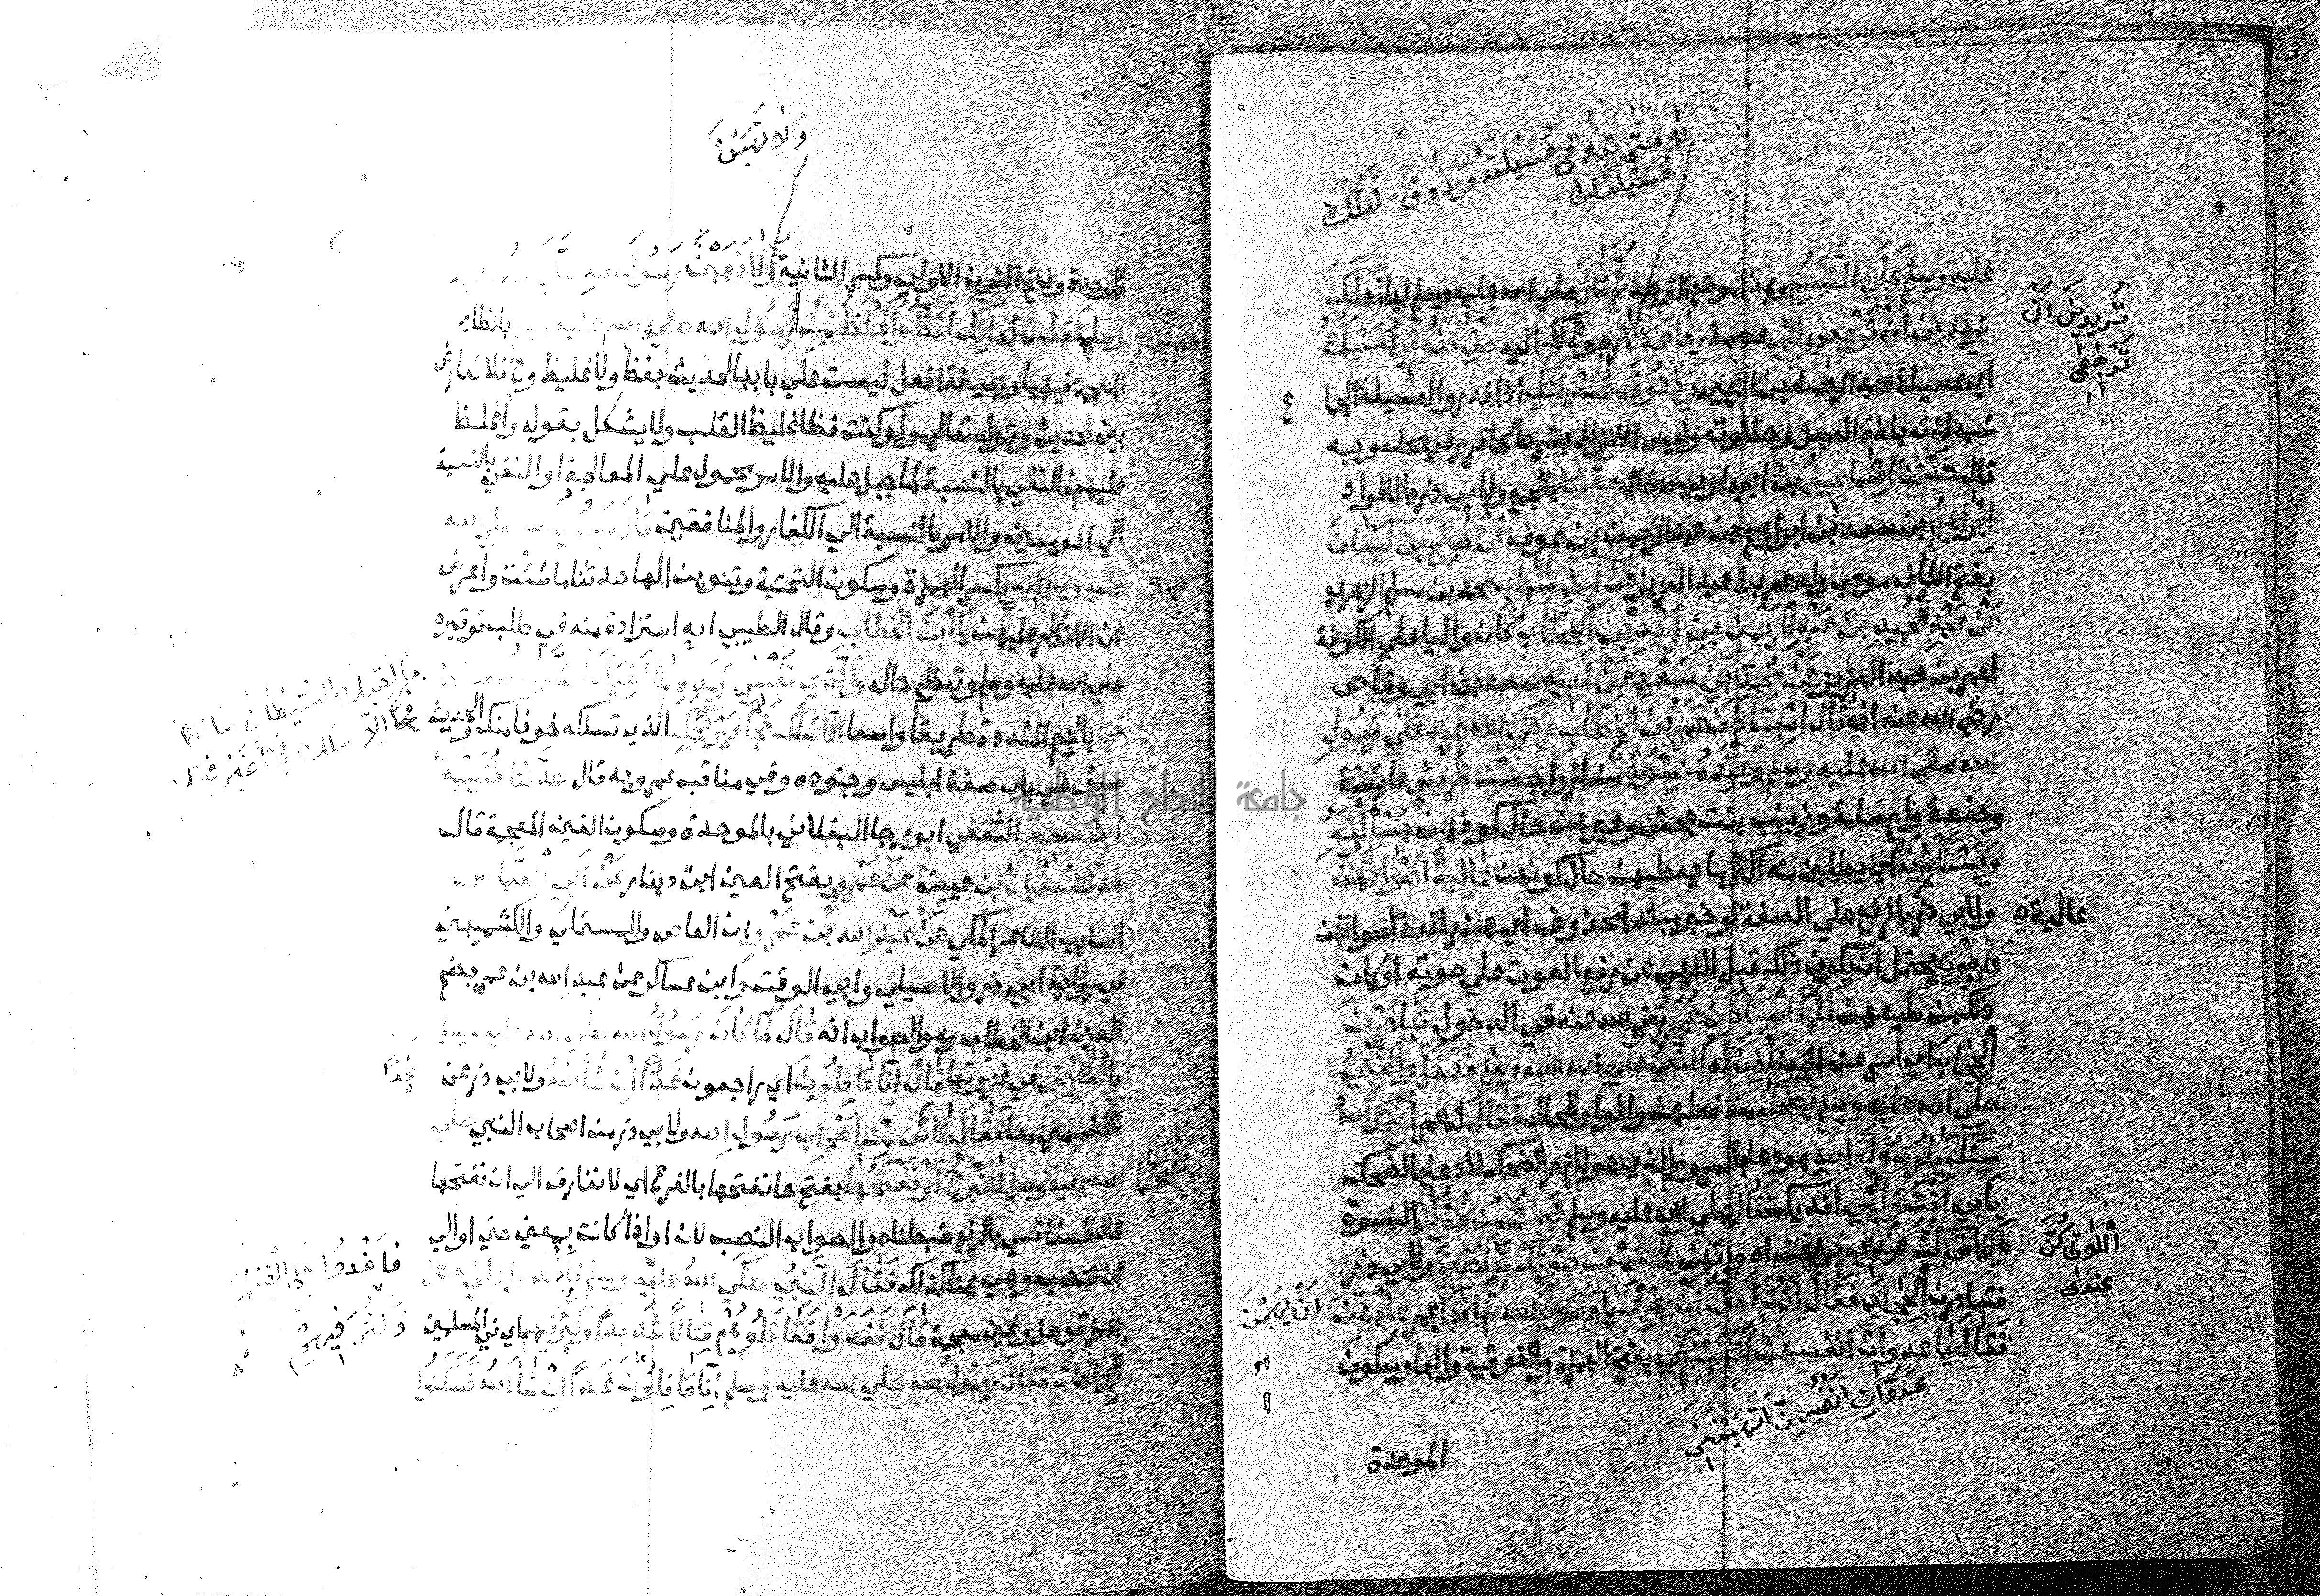 لا حتى تذوقي عسيلته ويذوق لعلك
عسيلتك
عليه وسلم على التبسم وهذا موضع الترجمة ثم قال صلى الله عليه وسلم لها لعلك
تريدين ان
تراجعى
تريدين ان ترجعي الى عصمة رفاعة لا رجوع لك اليه حتى تذوقي عسيلته
اي عسيلة عبد الرحمن بن الزبير ويذوق عسيلتك اذا قدر والعسيلة الجما
ع
شبه لذته بلذة العسل وحلاوته وليس الانزال بشرط كما قرر في محله وبه
قال حدثنا اسماعيل بن ابي اويس قال حدثنا بالجمع ولابي ذر بالافراد
ابراهيم بن سعد بن ابراهيم بن عبد الرحمن بن عوف عن صالح بن كيسان
بفتح الكاف مودب ولد عمر بن عبد العزيز عن ابن شهاب محمد بن مسلم الزهري
عن عبد الحميد بن عبد الرحمن بن زيد بن الخطاب كان واليا على الكوفة
لعمر بن عبد العزيز عن محمد بن سعد عن ابيه سعد بن ابي وقاص
رضي الله عنه انه قال استاذن عمر بن الخطاب رضي الله عنه على رسول
الله صلى الله عليه وسلم وعنده نسوة من ازواجه من قريش عايشة
وحفصة وام سلمة وزينب بنت جحش وغيرهن حال كونهن يسالنه
ويستكثرنه اي يطلبن منه اكثر مما يعطيهن حال كونهن عالية اصواتهن
ولابي ذر بالرفع على الصفة او خبر مبتدا محذوف اي هن رافعة اصواتهن
عالية
على صوته يحتمل ان يكون ذلك قبل النهي عن رفع الصوت على صوته او كان
ذلك من طبعهن فلما استاذن عمر رضي الله عنه في الدخول تبادرن
الحجاب اي اسرعن اليه فاذن له النبي صلى الله عليه وسلم فدخل والنبي
صلى الله عليه وسلم يضحك من فعلهن والواو للحال فقال له عمر اضحك الله
سنك يا رسول الله هو دعا بالسرور الذي هو لازم الضحك لا دعا بالضحك
بابي انت وامي افديك فقال صلى الله عليه وسلم عجبت من هؤلاء النسوة
اللاتي كن عندي يرفعن اصواتهن لما سمعن صوتك تبادرن ولابي ذر
اللاتى كن
عندى
فتبادرن الحجاب فقال انت احق ان يهبن يا رسول الله ثم اقبل عمر عليهن
ان يهبن
فقال يا عدوات انفسهن اتهبنني بفتح الهمزة والفوقية والها وسكون
عدوات انفسهن اتهبننى
الموحدة
ولا تهبن
الموحدة وفتح النون الاولى وكسر الثانية ولا تهبن رسول الله صلى
وسلم فقلن له انك افظ واغلظ من رسول الله صلى الله عليه بالظاء
فقلن
المعجمة فيهما وصيغة افعل ليست على بابها لحديث بفظ ولا غليظ وح فلا تعارض
بين الحديث وقوله تعالى ولو كنت فظا غليظ القلب ولا يشكل بقوله واغلظ
عليهم فالنفي بالنسبة لما جبل عليه والامر محمول على المعالجة او النفي بالنسبة
الى المومنين والامر بالنسبة الى الكفار والمنافقين قال رسول الله صلى الله
عليه وسلم ايه بكسر الهمزة وسكون التحتية وتنوين الها حدثنا ما شئت واعرض
ايه
عن الانكار عليهن يا ابن الخطاب وقال الطيبي ايه استزادة منه في طلب توقيره
صلى الله عليه وسلم وتعظيم حاله والذي نفسي بيده ما
ما لقيك الشيطان سالكا
فجا الا سلك فجا غير فجك
فجا بالجيم المشددة طريقا واسعا الا سلك فجا غير فجك الذي تسلكه خوفا منك والحديث
سبق في باب صفة ابليس وجنوده وفي مناقب عمر وبه قال حدثنا قتيبة
ابن سعيد الثقفي ابو رجا البغلاني بالموحدة وسكون الغين المعجمة قال
حدثنا سفيان بن عيينة عن عمرو بفتح العين ابن دينار عن ابي العباس
السايب الشاعر المكي عن عبد الله بن عمرو بن العاص وللمستملي والكشميهني
في رواية ابي ذر والاصيلي وابي الوقت وابن عساكر عن عبد الله بن عمر بضم
العين ابن الخطاب وهو الصواب انه قال لما كان رسول الله صلى الله عليه وسلم
بالطائف في غزوتها قال انا قافلون اي راجعون غدا ان شا الله ولابي ذر عن
غدا
الكشميهني معا فقال ناس من اصحاب رسول الله ولابي ذر من اصحاب النبي صلى
الله عليه وسلم لا نبرح او نفتحها بفتح حا نفتحها بالفرع اي لا نفارق الى ان نفتحها
او نفتحها
قال السفاقسي بالرفع ضبطناه والصواب النصب لان او اذا كانت بمعنى حتى او الى
ان تنصب وهي هنا كذلك فقال النبي صلى الله عليه وسلم فاغدوا على
فاغدوا على القتال
بهمزة وصل وغين معجمة قال فغدوا فقاتلوهم قتالا شديدا وكثر فيهم اي في المسلمين
وكثر فيهم
الجراحات فقال رسول الله صلى الله عليه وسلم انا قافلون غدا ان شا الله فسكتوا
جامعة النجاح الوطنية